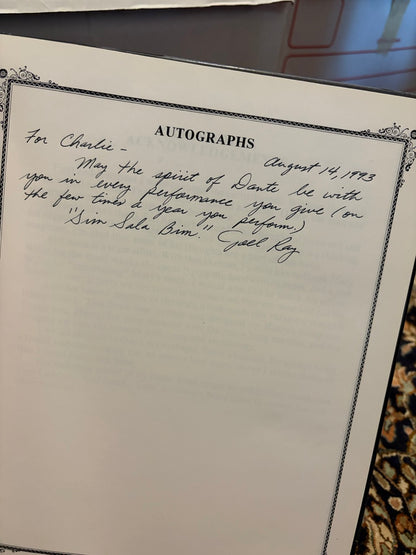 AUTOGRAPHS
For Charlie - August 14, 1993
May the spirit of Dante be with
you in every performance you give (on
the few times a year you perform.)
"Sim Sala Bim." Joel Ray